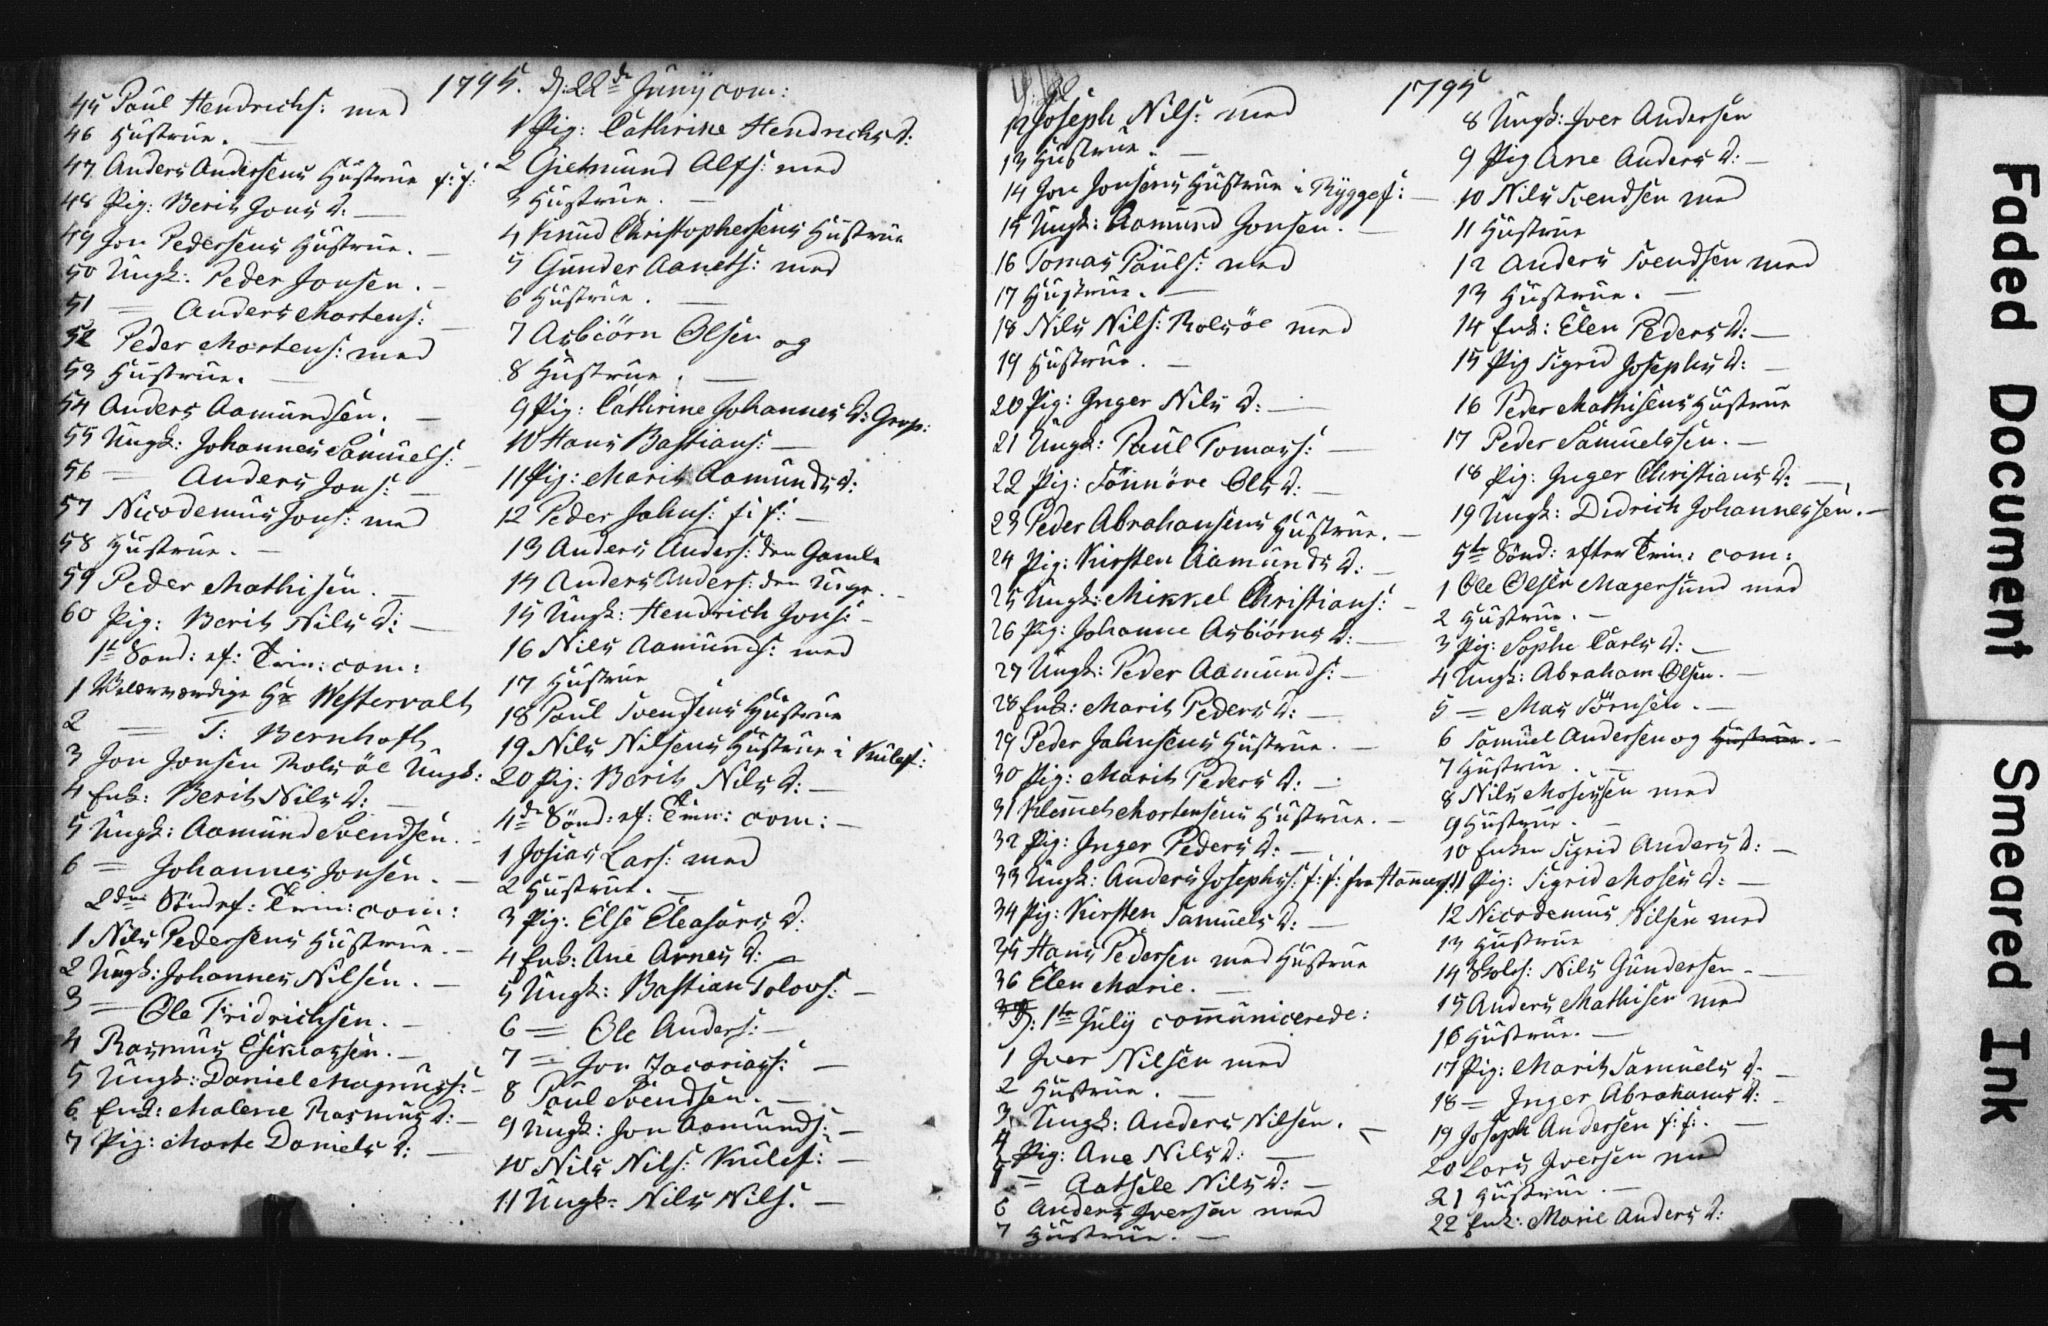 1795.
45 Paul Hendrichs: med
46 Hustrue. —
47 Anders Andersens Hustrue f: f:
48 Pig: Berit Jons D: —
49 Jon Pedersens Hustrue. —
50 Ungk: Peder Jonsen. —
51 = Anders Mortens: —
52 Peder Mortens: med
53 Hustrue. —
54 Anders Aamundsen. —
55 Ungk: Johannes Samuels: —
56 = Anders Jons: —
57 Nicodemus Jons: med
58 Hustrue. —
59 Peder Mathisen. —
60 Pig: Berit Nils D: —
1te Sönd: ef: Trin: com:
1 Velærværdige Hr Westervalt
2 = T: Bernhoft
3 Jon Jonsen Rolsöe Ungk:
4 Enk: Berit Nils D: —
5 Ungk: Aamund Svendsen. —
6 = Johannes Jonsen. —
2den Sönd ef: Trin: com:
1 Nils Pedersens Hustrue. —
2 Ungk: Johannes Nilsen. —
3 = Ole Fridrichsen. —
4 Rasmus Esekiassen. —
5 Ungk: Daniel Magnuss: —
6 Enk: Malene Rasmus D: —
7 Pig: Marte Daniels D: —
d: 22de Junij com:
1 Pig: Cathrine Hendrichs D:
2 Giermund Alfs: med
3 Hustrue. —
4 Knud Christophersens Hustrue
5 Gunder Aanets: med
6 Hustrue. —
7 Asbiörn Olsen og
8 Hustrue. —
9 Pig: Cathrine Johannes D:
10 Hans Bastians: —
11 Pig: Marit Aamunds D:
12 Peder Johns: f: f: —
13 Anders Anders: den Gamle
14 Anders Anders: den Unge. —
15 Ungk: Hendrich Jons: —
16 Nils Aamunds: med
17 Hustrue
18 Paul Svendsens Hustrue
19 Nils Nilsens Hustrue i Kulef:
20 Pig: Berit Nils D: —
4de Sönd: ef: Trin: com: —
1 Josias Lars: med
2 Hustrue. —
3 Pig: Else Eleasars D:
4 Enk: Ane Arnes D: —
5 Ungk: Bastian Tolovs: —
6 = Ole Anders: —
7 = Jon Jacorias: —
8 Paul Svendsen. —
9 Ungk: Jon Aamunds: —
10 Nils Nils: Kulef: —
11 Ungk: Nils Nils: —
1795
12 Joseph Nils: med
13 Hustrue. —
14 Jon Jonsens Hustrue i Ryggef: —
15 Ungk: Aamund Jonsen. —
16 Tomas Pauls: med
17 Hustrue. —
18 Nils Nils: Rolsöe med
19 Hustrue. —
20 Pig: Inger Nils D: —
21 Ungk: Paul Tomass: —
22 Pig: Sönnöve Ols D: —
23 Peder Abrahamsens Hustrue. —
24 Pig: Kirsten Aamunds D: —
25 Ungk: Mikkel Christians: —
26 Pig: Johanne Asbiörns D: —
27 Ungk: Peder Aamunds: —
28 Enk: Marit Peders D: —
29 Peder Johnsens Hustrue. —
30 Pig: Marit Peders D: —
31 Klemet Mortensens Hustrue. —
32 Pig: Inger Peders D: —
33 Ungk: Anders Josephs: f: f: fra Hamerf:
34 Pig: Kirsten Samuels D: —
35 Hans Pedersen med Hustrue
36 Elen Marie. —
D: 1te Julÿ comunicerede:
1 Iver Nilsen med
2 Hustrue. —
3 Ungk: Anders Nilsen. —
4 Pig: Ane Nils D: —
5 = Aatsele Nils D: —
6 Anders Iversen med
7 Hustrue. —
8 Ungk: Iver Andersen
9 Pig Ane Anders D: —
10 Nils Svendsen med
11 Hustrue
12 Anders Svendsen med
13 Hustrue. —
14 Enk: Elen Peders D: —
15 Pig Sigrid Josephs D: —
16 Peder Mathisens Hustrue
17 Peder Samuelssen. —
18 Pig: Inger Christians D: —
19 Ungk: Didrich Johannessen. —
5te Sönd: efter Trin: com:
1 Ole Olsen Magersund med
2 Hustrue. —
3 Pig: Sophe Carls D: —
4 Ungk: Abraham Olsen. —
5 = Mas Sörnsen. —
6 Samuel Andersen og Hustrue. —
7 Hustrue. —
8 Nils Mosessen med
9 Hustrue. —
10 Enken Sigrid Anders D: —
11 Pig: Sigrid Moses D: —
12 Nicodemus Nilsen med
13 Hustrue
14 Skols: Nils Gundersen. —
15 Anders Mathisen med
16 Hustrue. —
17 Pig: Marit Samuels D. —
18 = Inger Abrahams D: —
19 Joseph Andersen f: f: —
20 Lars Iversen med
21 Hustrue. —
22 Enk: Marie Anders D:
Faded Document
Smeared Ink